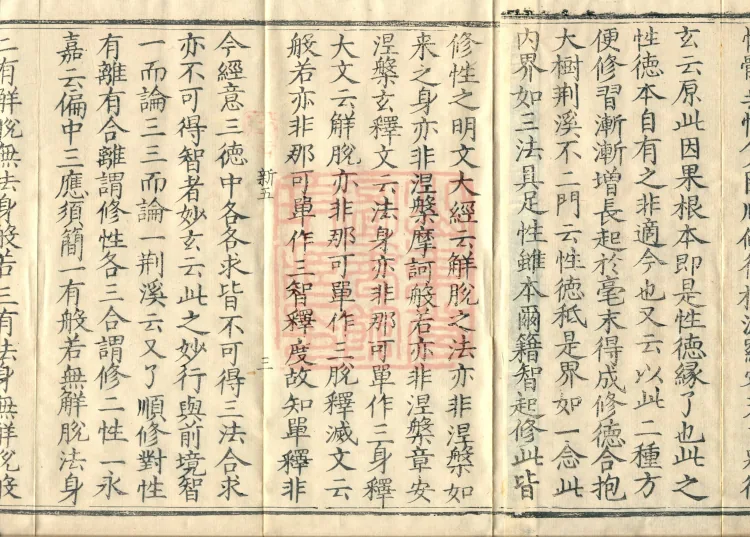 玄云原此因果根本即是性德緣了也此之
性德本自有之非適今也又云以此二種方
便修習漸漸增長起於毫末得成修德合抱
大樹荆溪不二門云性德秖是界如一念此
內界如三法具足性雖本爾籍智起修此皆
修性之明文大經云解脫之法亦非涅槃如
來之身亦非涅槃摩訶般若亦非涅槃章安
涅槃玄釋文云法身亦非那可單作三身釋
大文云解脫亦非那可單作三脫釋滅文云
般若亦非那可單作三智釋度故知單釋非
新五
三
今經意三德中各各求皆不可得三法合求
亦不可得智者妙玄云此之妙行與前境智
一而論三三而論一荆溪云又了順修對性
有離有合離謂修性各三合謂修二性一永
嘉云偏中三應須簡一有般若無解脫法身
二有解脫無法身般若三有法身無解脫般